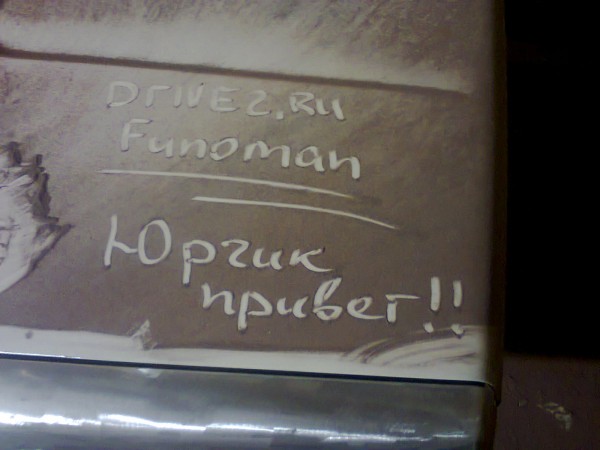 DRIVE2.RU
Funoman
Юргик
привет!!